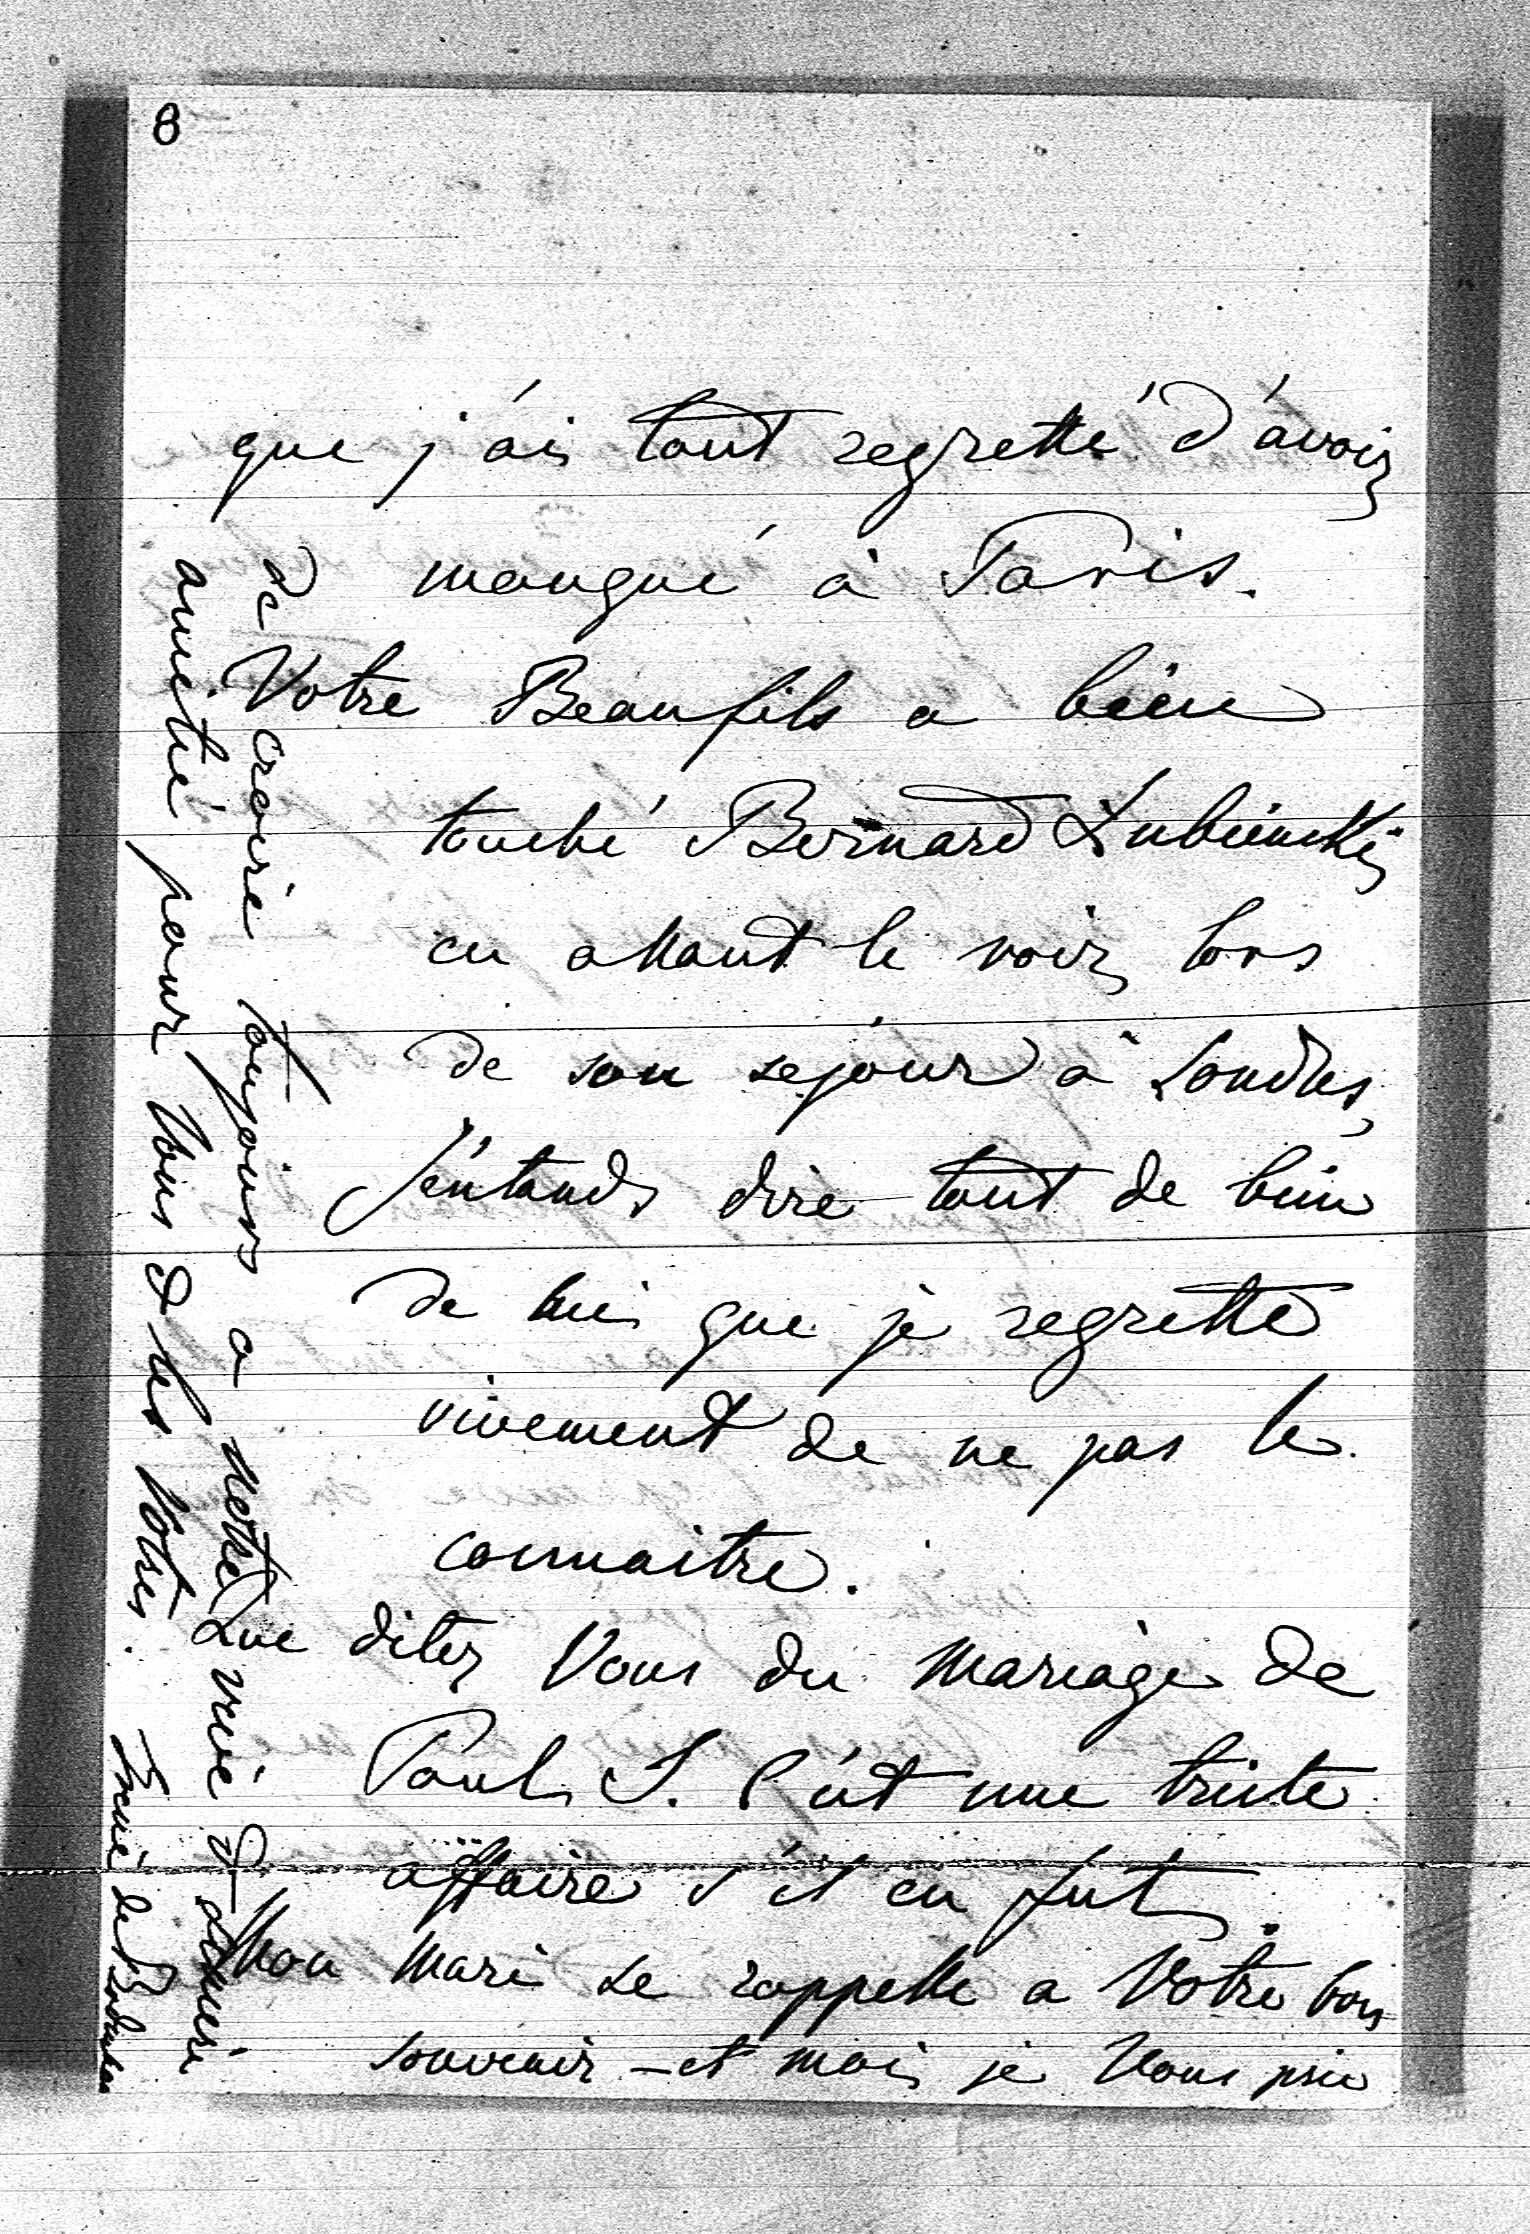 8
que j'ais tant regretté d'avoir
manqué à Paris.
Votre Beaufils a bien
touché Bernard Lubienski
en allant le voir lors
de son sejour à Londres,
J'entends dire tant de bien
de lui que je regrette
vivement de ne pas le
connaitre.
Que dites Vous du mariage de
Paul S. C'est une triste
affaire s'il en fut.
Mon Mari se rappelle a Votre bon
souvenir - et moi je Vous prie
de croire toujours a notre vieille &
amitié pour Vous & les Votres.
de